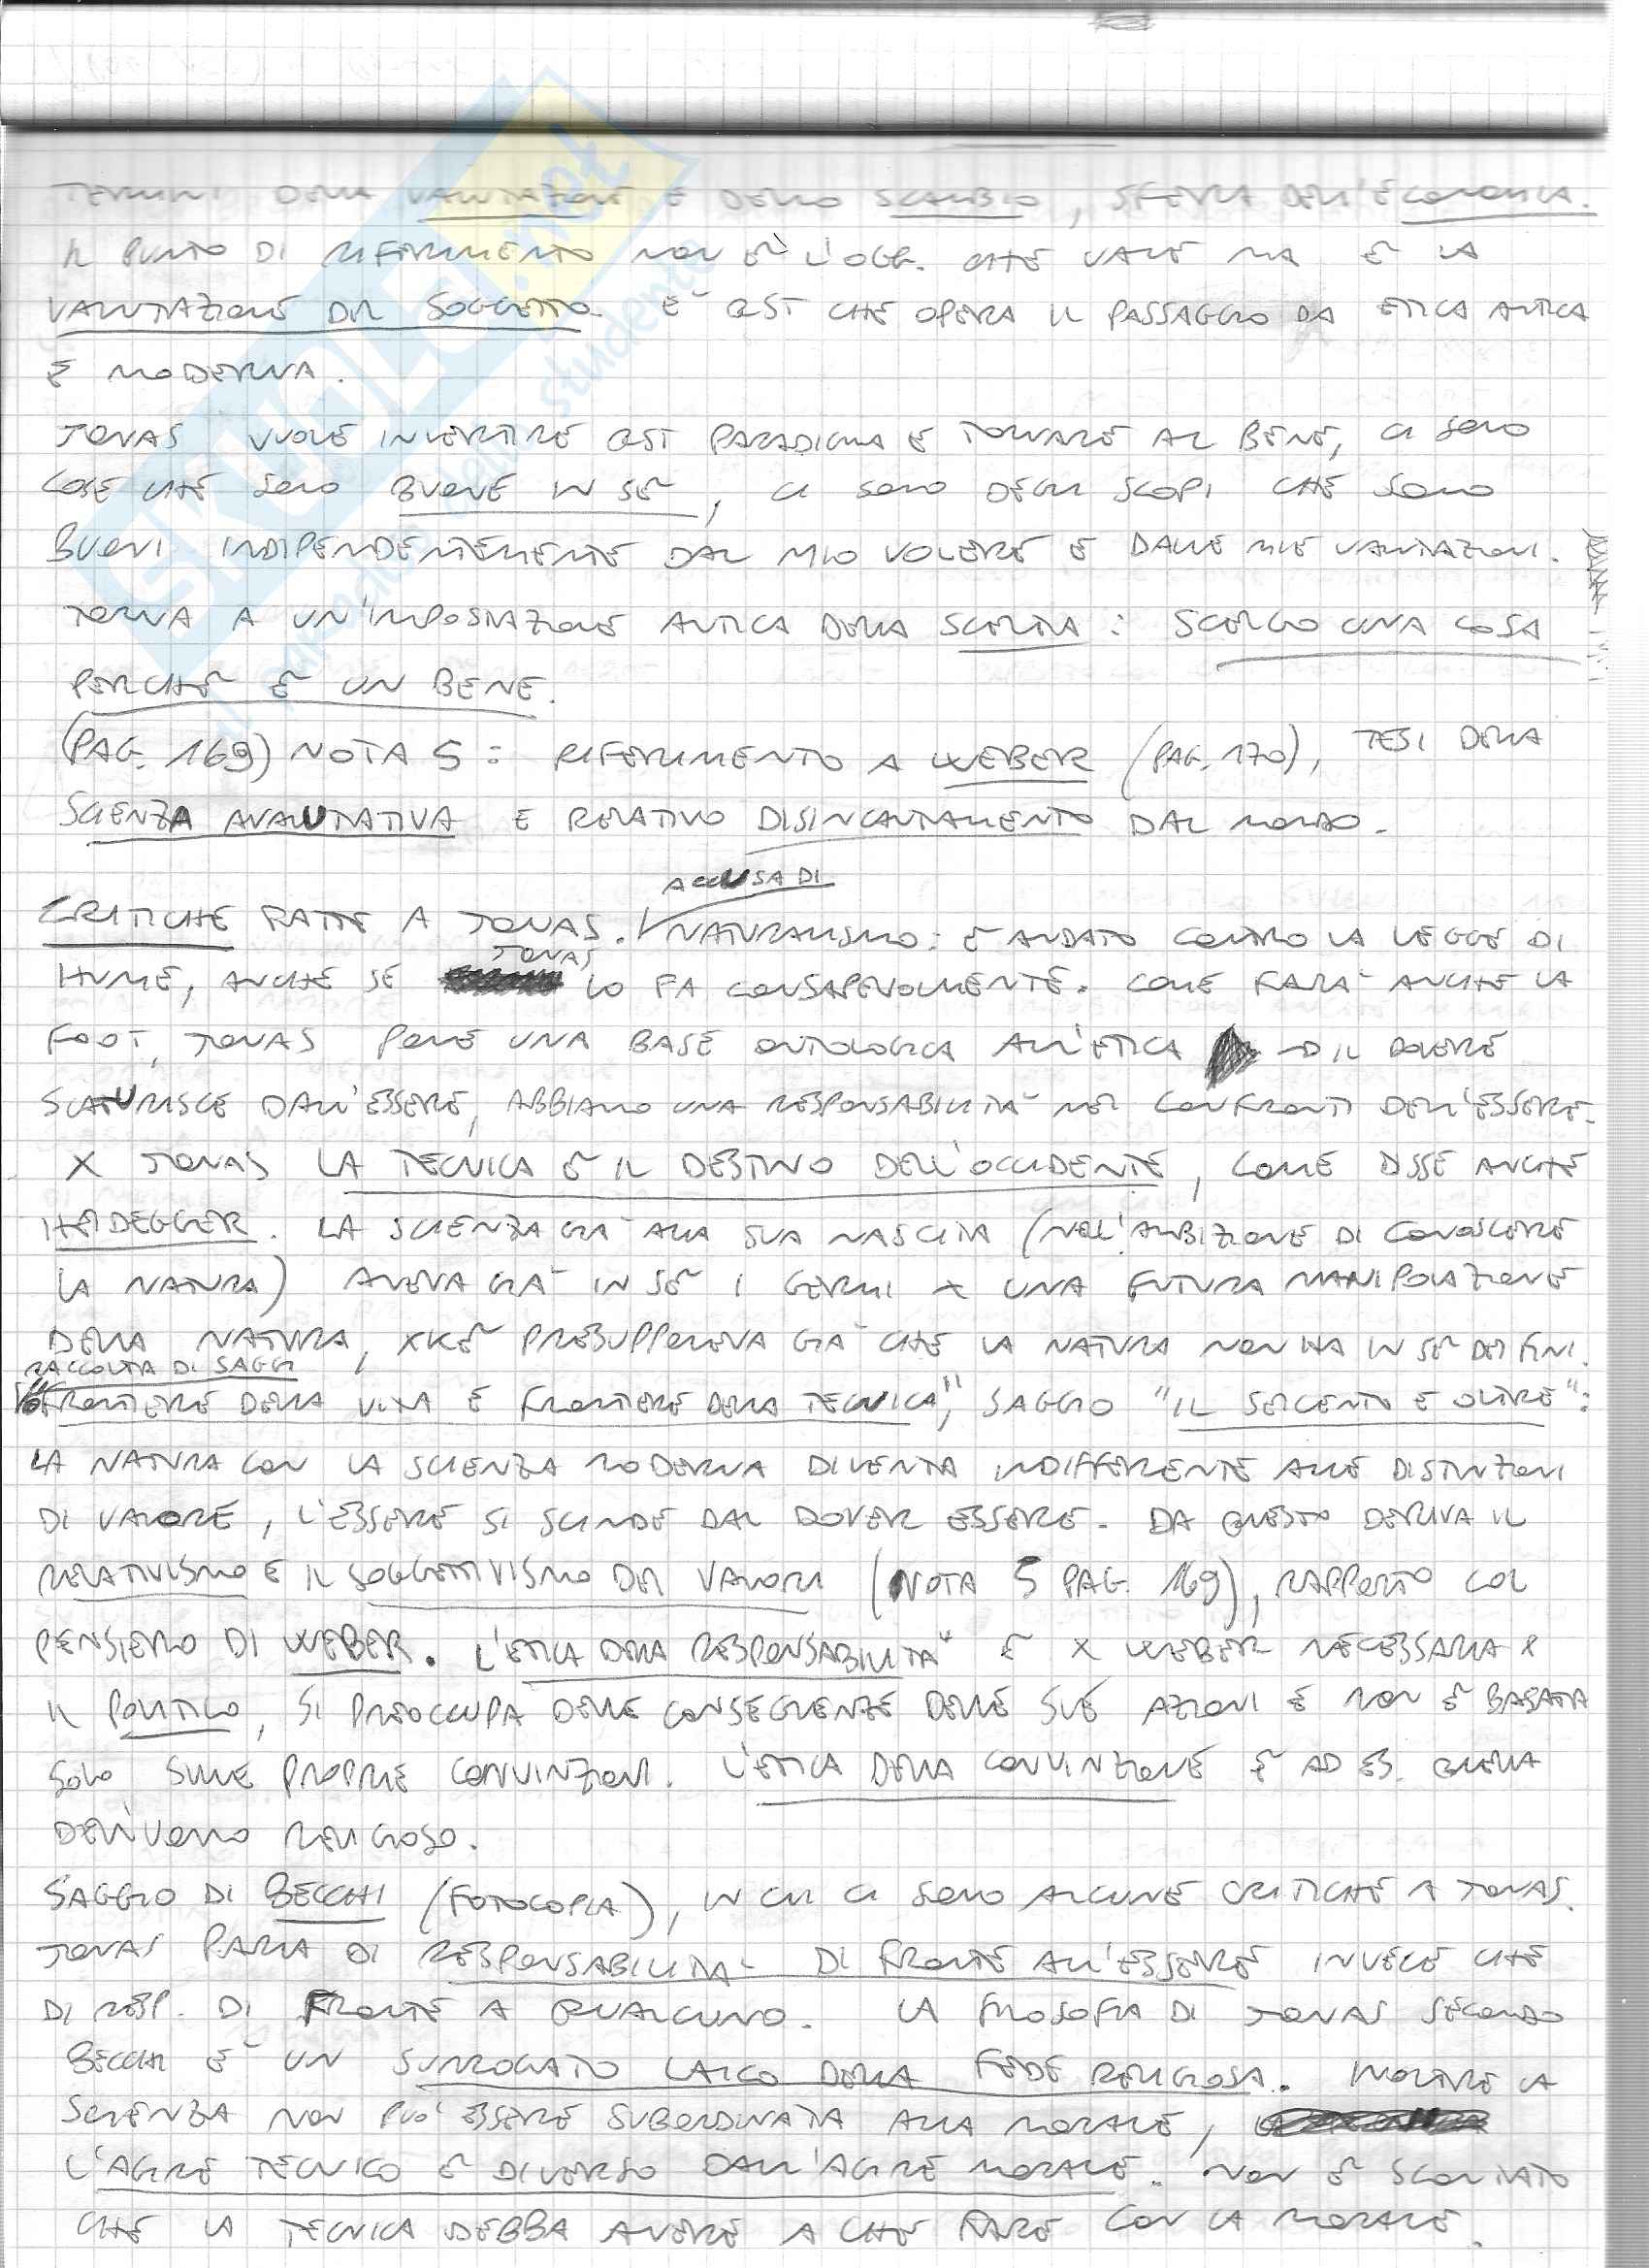 TERMINI DELLA VALUTAZIONE E DELLO SCAMBIO, SFERA DELL'ECONOMIA.
IL PUNTO DI RIFERIMENTO NON È L'OGG. CHE VALE MA È LA
VALUTAZIONE DEL SOGGETTO. È QST CHE OPERA IL PASSAGGIO DA ETICA ANTICA
E MODERNA.
JONAS VUOLE INVERTIRE QST PARADIGMA E TORNARE AL BENE, CI SONO
COSE CHE SONO BUONE IN SÈ, CI SONO DEGLI SCOPI CHE SONO
BUONI INDIPENDENTEMENTE DAL MIO VOLERE E DALLE MIE VALUTAZIONI.
TORNA A UN'IMPOSTAZIONE ANTICA DELLA SCELTA: SCELGO UNA COSA
PERCHÈ È UN BENE.
(PAG. 169) NOTA 5: RIFERIMENTO A WEBER (PAG. 170), TESI DELLA
SCIENZA AVALUTATIVA E RELATIVO DISINCANTAMENTO DAL MONDO.
ACCUSA DI
CRITICHE FATTE A JONAS. NATURALISMO: È ANDATO CONTRO LA LEGGE DI
JONAS
HUME, ANCHE SE LO FA CONSAPEVOLMENTE. COME FARÀ ANCHE LA
FOOT, JONAS PONE UNA BASE ONTOLOGICA ALL'ETICA → IL DOVERE
SCATURISCE DALL'ESSERE, ABBIAMO UNA RESPONSABILITÀ NEI CONFRONTI DELL'ESSERE.
X JONAS LA TECNICA È IL DESTINO DELL'OCCIDENTE, COME DISSE ANCHE
HEIDEGGER. LA SCIENZA GIÀ ALLA SUA NASCITA (NELL'AMBIZIONE DI CONOSCERE
LA NATURA) AVEVA GIÀ IN SÈ I GERMI X UNA FUTURA MANIPOLAZIONE
DELLA NATURA, XKÈ PRESUPPONEVA GIÀ CHE LA NATURA NON HA IN SÈ DEI FINI.
RACCOLTA DI SAGGI
"FRONTIERE DELLA VITA E FRONTIERE DELLA TECNICA", SAGGIO "IL SEICENTO E OLTRE":
LA NATURA CON LA SCIENZA MODERNA DIVENTA INDIFFERENTE ALLE DISTINZIONI
DI VALORE, L'ESSERE SI SCINDE DAL DOVER ESSERE. DA QUESTO DERIVA IL
RELATIVISMO E IL SOGGETTIVISMO DEI VALORI (NOTA 5 PAG. 169), RAPPORTO COL
PENSIERO DI WEBER. L'ETICA DELLA RESPONSABILITÀ È X WEBER NECESSARIA X
IL POLITICO, SI PREOCCUPA DELLE CONSEGUENZE DELLE SUE AZIONI E NON È BASATA
SOLO SULLE PROPRIE CONVINZIONI. L'ETICA DELLA CONVINZIONE È AD ES. QUELLA
DELL'UOMO RELIGIOSO.
SAGGIO DI BECCHI (FOTOCOPIA), IN CUI CI SONO ALCUNE CRITICHE A JONAS.
JONAS PARLA DI RESPONSABILITÀ DI FRONTE ALL'ESSERE INVECE CHE
DI RESP. DI FRONTE A QUALCUNO. LA FILOSOFIA DI JONAS SECONDO
BECCHI È UN SURROGATO LAICO DELLA FEDE RELIGIOSA. INOLTRE LA
SCIENZA NON PUÒ ESSERE SUBORDINATA ALLA MORALE,
L'AGIRE TECNICO È DIVERSO DALL'AGIRE MORALE. NON È SCONTATO
CHE LA TECNICA DEBBA AVERE A CHE FARE CON LA MORALE.
SKUOLA.net